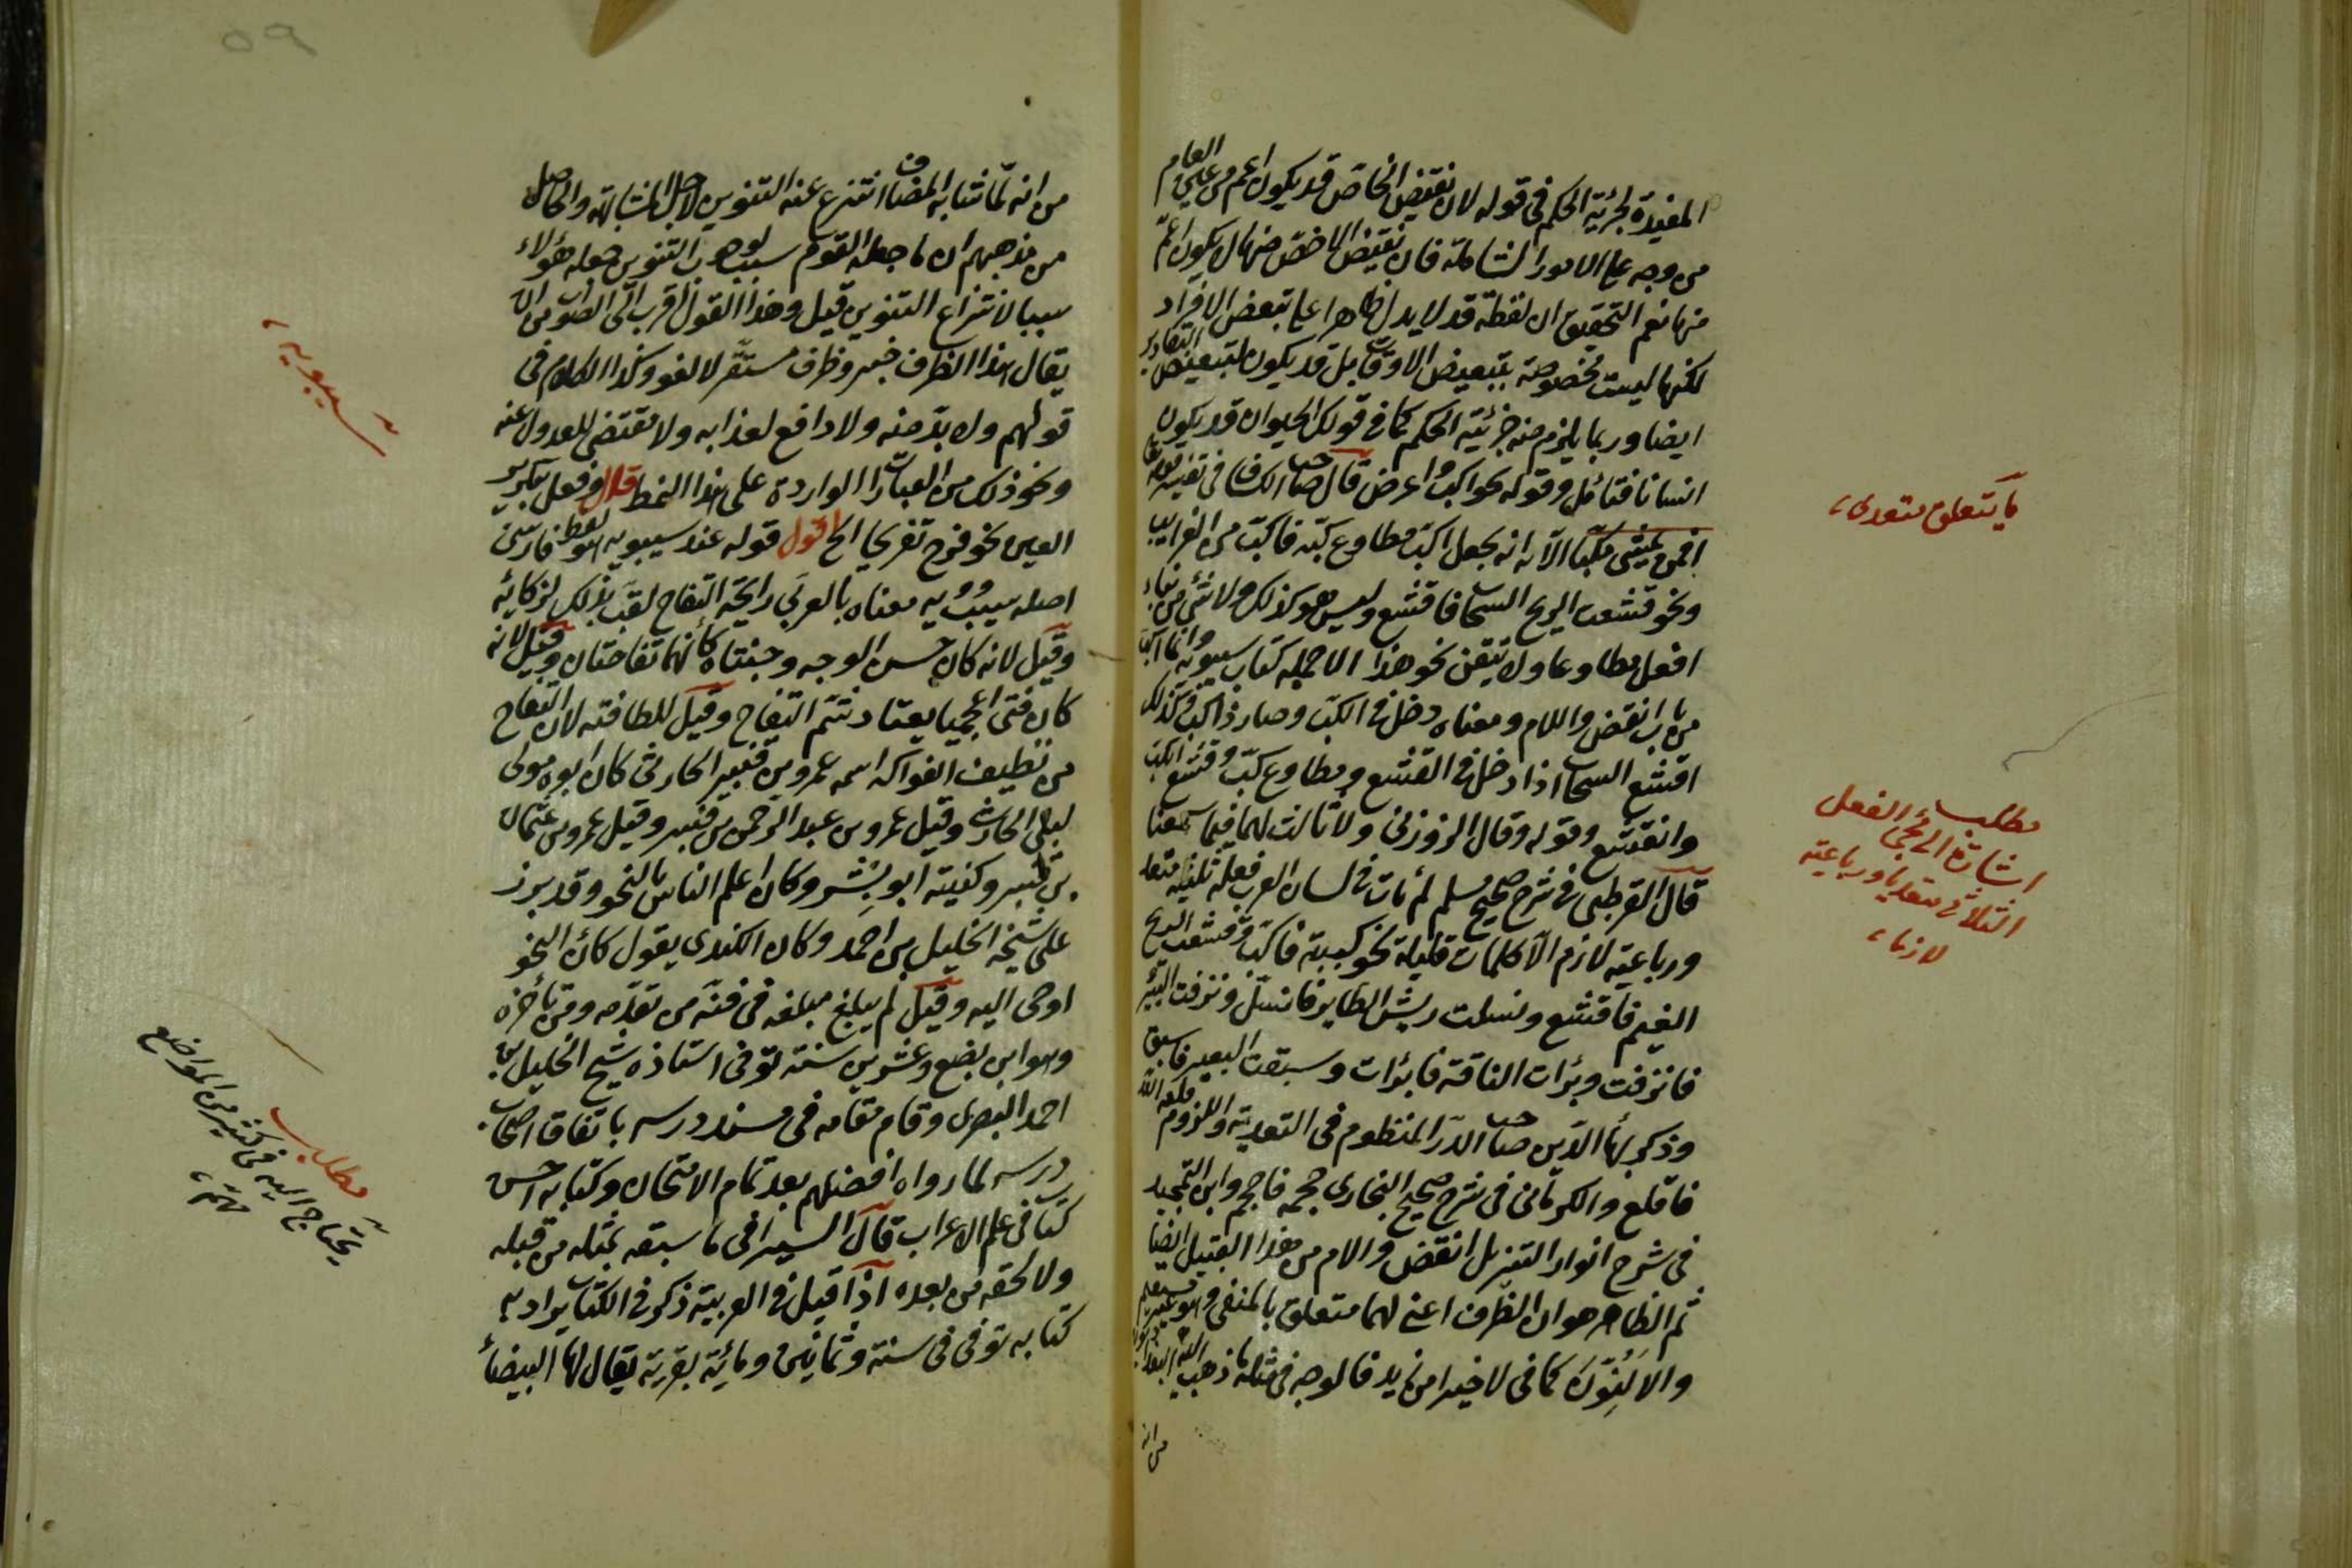 المفيدة لجزئية الحكم فى قوله لان نقيض الخاص قد يكون اعم من عين العام
من وجه على الامور الشاملة فان نقيض الاخص منها لا يكون اعم
منها نعم التحقيق ان لفظة قد لا يدل ظاهرا على تبعض الافراد
لكنها ليست مخصوصة بتبعيض الاوقات بل قد يكون لتبعيض التقادير
ايضا وربما يلزم منه جزئية الحكم كما فى قولك الحيوان قد يكون
انسانا فتامل وقوله كواكب واعرض قال صاحب الكشاف فى تفسير قوله تعا
افمن يمشى مكبا الآية انه يجعل اكب مطاوع كبه فاكب من الغرايب
ونحو قشعت الريح السحاب فاقشع وليس هو كذلك ولا شئ من بناء
افعل مطاوعا ولا يتقن نحو هذا الا حملة كتاب سيبويه وانما اكب
من باب انفض والام ومعناه دخل فى الكب وصار ذا كب وكذلك
اقشع السحاب اذا دخل فى القشع ومطاوع كب وقشع انكب
وانقشع وقوله وقال الزوزنى ولا ثالث لهما فيما سمعنا
قال القرطبى فى شرح صحيح مسلم لم يات فى لسان العرب فعل ثلاثيه متعد
ورباعيه لازم الا كلمات قليلة نحو كببته فاكب وقشعت الريح
الغيم فاقشع ونسلت ريش الطاير فانسل ونزفت البئر
فانزفت ومرات الناقة فامرات وسبقت البعير فاسبق
وذكر بهاء الدين صاحب الدر المنظوم فى التعدية واللزوم قلعه الله
فاقلع والكرمانى فى شرح صحيح البخارى حجمه فاحجم وابن التمجيد
فى شرح انوار التنزيل انفض والام من هذا القبيل ايضا
ثم الظاهر هو ان الظرف اعنى لهما متعلق بالمنفى وهو غير مستقيم
والا لنون كما فى لا خيرا من زيد فالوجه فى مثله ما ذهب اليه البغداديون
من انه
ما يتعلق متعدى
مطلب
اشارة الى مجئ الفعل
الثلاثى متعديا ورباعيته
لازما
٥٩
من انه لما شابه المضاف انتزع عنه التنوين لاجل المشابهة والحاصل
من مذهبهم ان ما جعله القوم سببا لوجوب التنوين جعله هؤلاء
سببا لانتزاع التنوين قيل وهذا القول اقرب الى الصواب من ان
يقال هذا الظرف خبر وظرف مستقر لا لغو وكذا الكلام فى
قولهم ولا بد منه ولا دافع لعذابه ولا مقتضى للعدول عنه
ونحو ذلك من العبارات الواردة على هذا النمط قال وفعل بتكرير
العين نحو فرح تفريحا الخ اقول قوله عند سيبويه هو لفظ فارسى
اصله سيبويه معناه بالعربى رايحة التفاح لقب بذلك لزكائه
وقيل لانه كان حسن الوجه وجنتاه كانهما تفاحتان وقيل لانه
كان فتى اعجميا يعتاد شم التفاح وقيل للطافته لان التفاح
من نظيف الفواكه اسمه عمرو بن قنبر الحارثى كان ابوه مولى
لبنى الحارث وقيل عمرو بن عبد الرحمن بن قنبر وقيل عمرو بن عثمان
بن قنبر وكنيته ابو بشر وكان اعلم الناس بالنحو وقد برز
على شيخه الخليل بن احمد وكان الكندى يقول كان النحو
اوحى اليه وقيل لم يبلغ مبلغه فى فنه من تقدمه ومن تاخره
وهو ابن بضع وعشرين سنة توفى استاذه شيخ الخليل بن
احمد البصرى وقام مقامه فى مسند درسه باتفاق اصحاب
درسه لما رواه افضلهم بعد تمام الامتحان وكتابه احسن
كتاب فى علم الاعراب قال السيرافى ما سبقه بمثله من قبله
ولا لحقه من بعده اذا قيل فى العربية ذكر فى الكتاب يراد به
كتابه توفى فى سنة وثمانين ومائة بقرية يقال لها البيضا
سيبويه
مطلب
يحتاج اليه فى كثير من المواضع